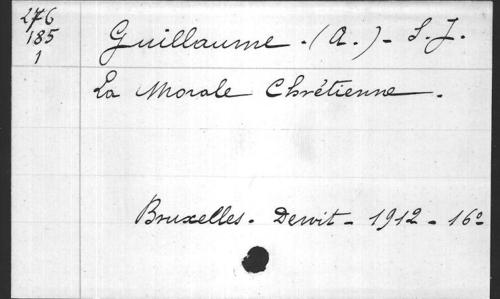 276
185
1
Guillaume - (A.) - S. J.
La Morale Chrétienne.
Bruxelles - Dewit - 1912 - 16º